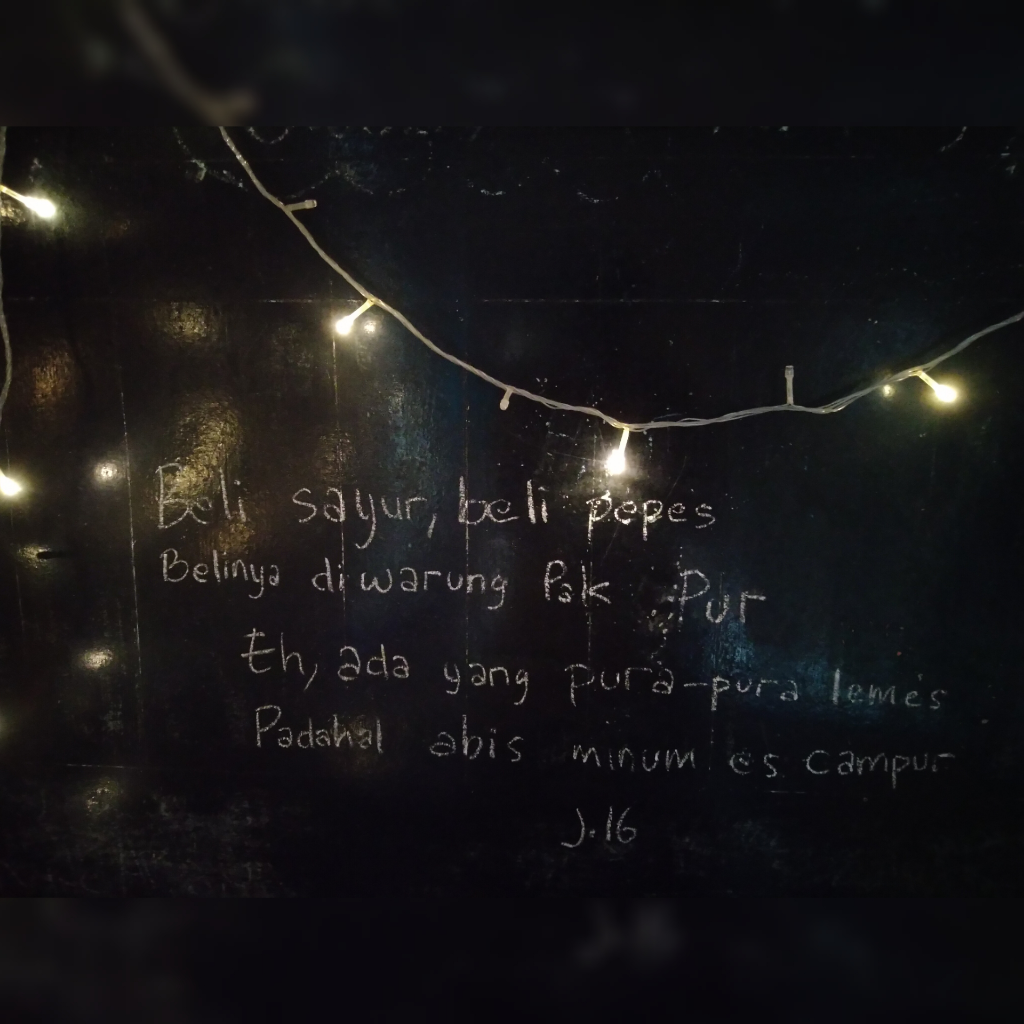 Beli sayur, beli pepes
Belinya di warung Pak Pur
Eh, ada yang pura-pura lemes
Padahal abis minum es campur
J.16